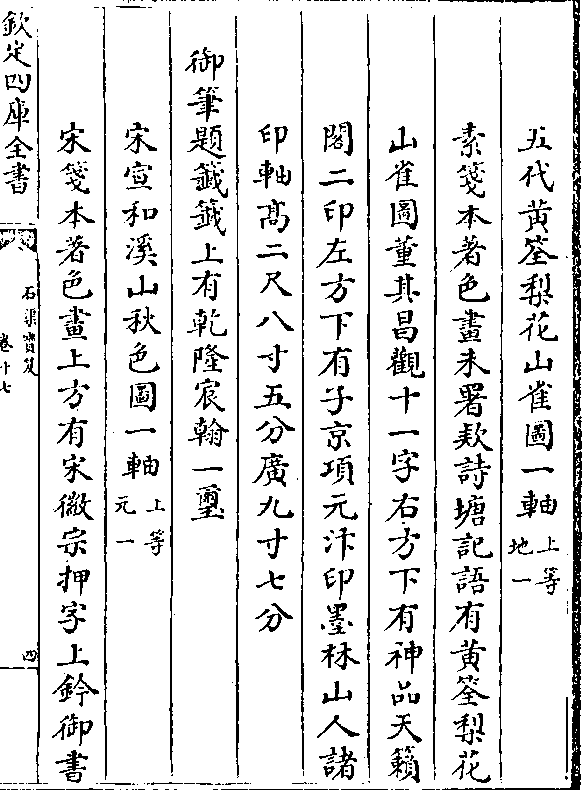 五代黄筌梨花山雀圖一軸上等地一
素箋本著色畫未署欵詩塘記語有黄筌梨花
山雀圖董其昌觀十一字右方下有神品天籟
閣二印左方下有子京項元汴印墨林山人諸
印軸髙二尺八寸五分廣九寸七分
御筆題籤籤上有乾隆宸翰一璽
宋宣和溪山秋色圖一軸上等元一
宋箋本著色畫上方有宋徽宗押字上鈐御書
欽定四庫全書
石渠寶笈
卷十七
四